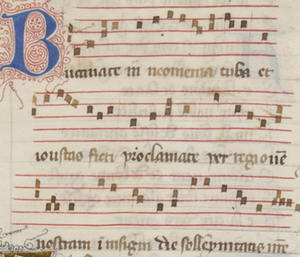 Bucinate in neomenia tuba et
proclamate per regionē
nostram i insigni die sollēpnitatis